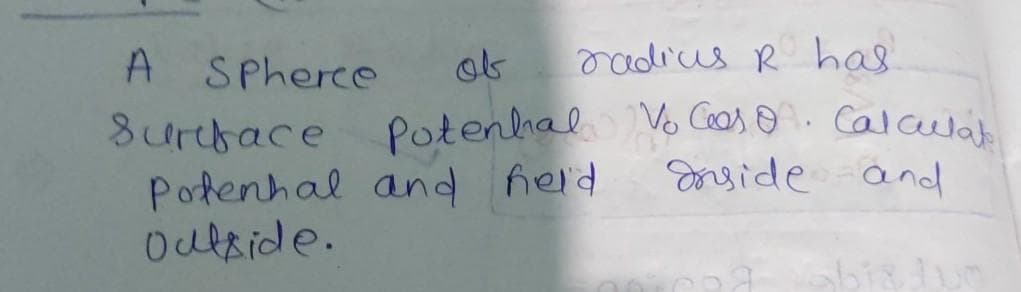 A Spherce of radius R has
Surcface potenhal V₀ Cosθ. Calculate
potenhal and field Inside and
Outside.